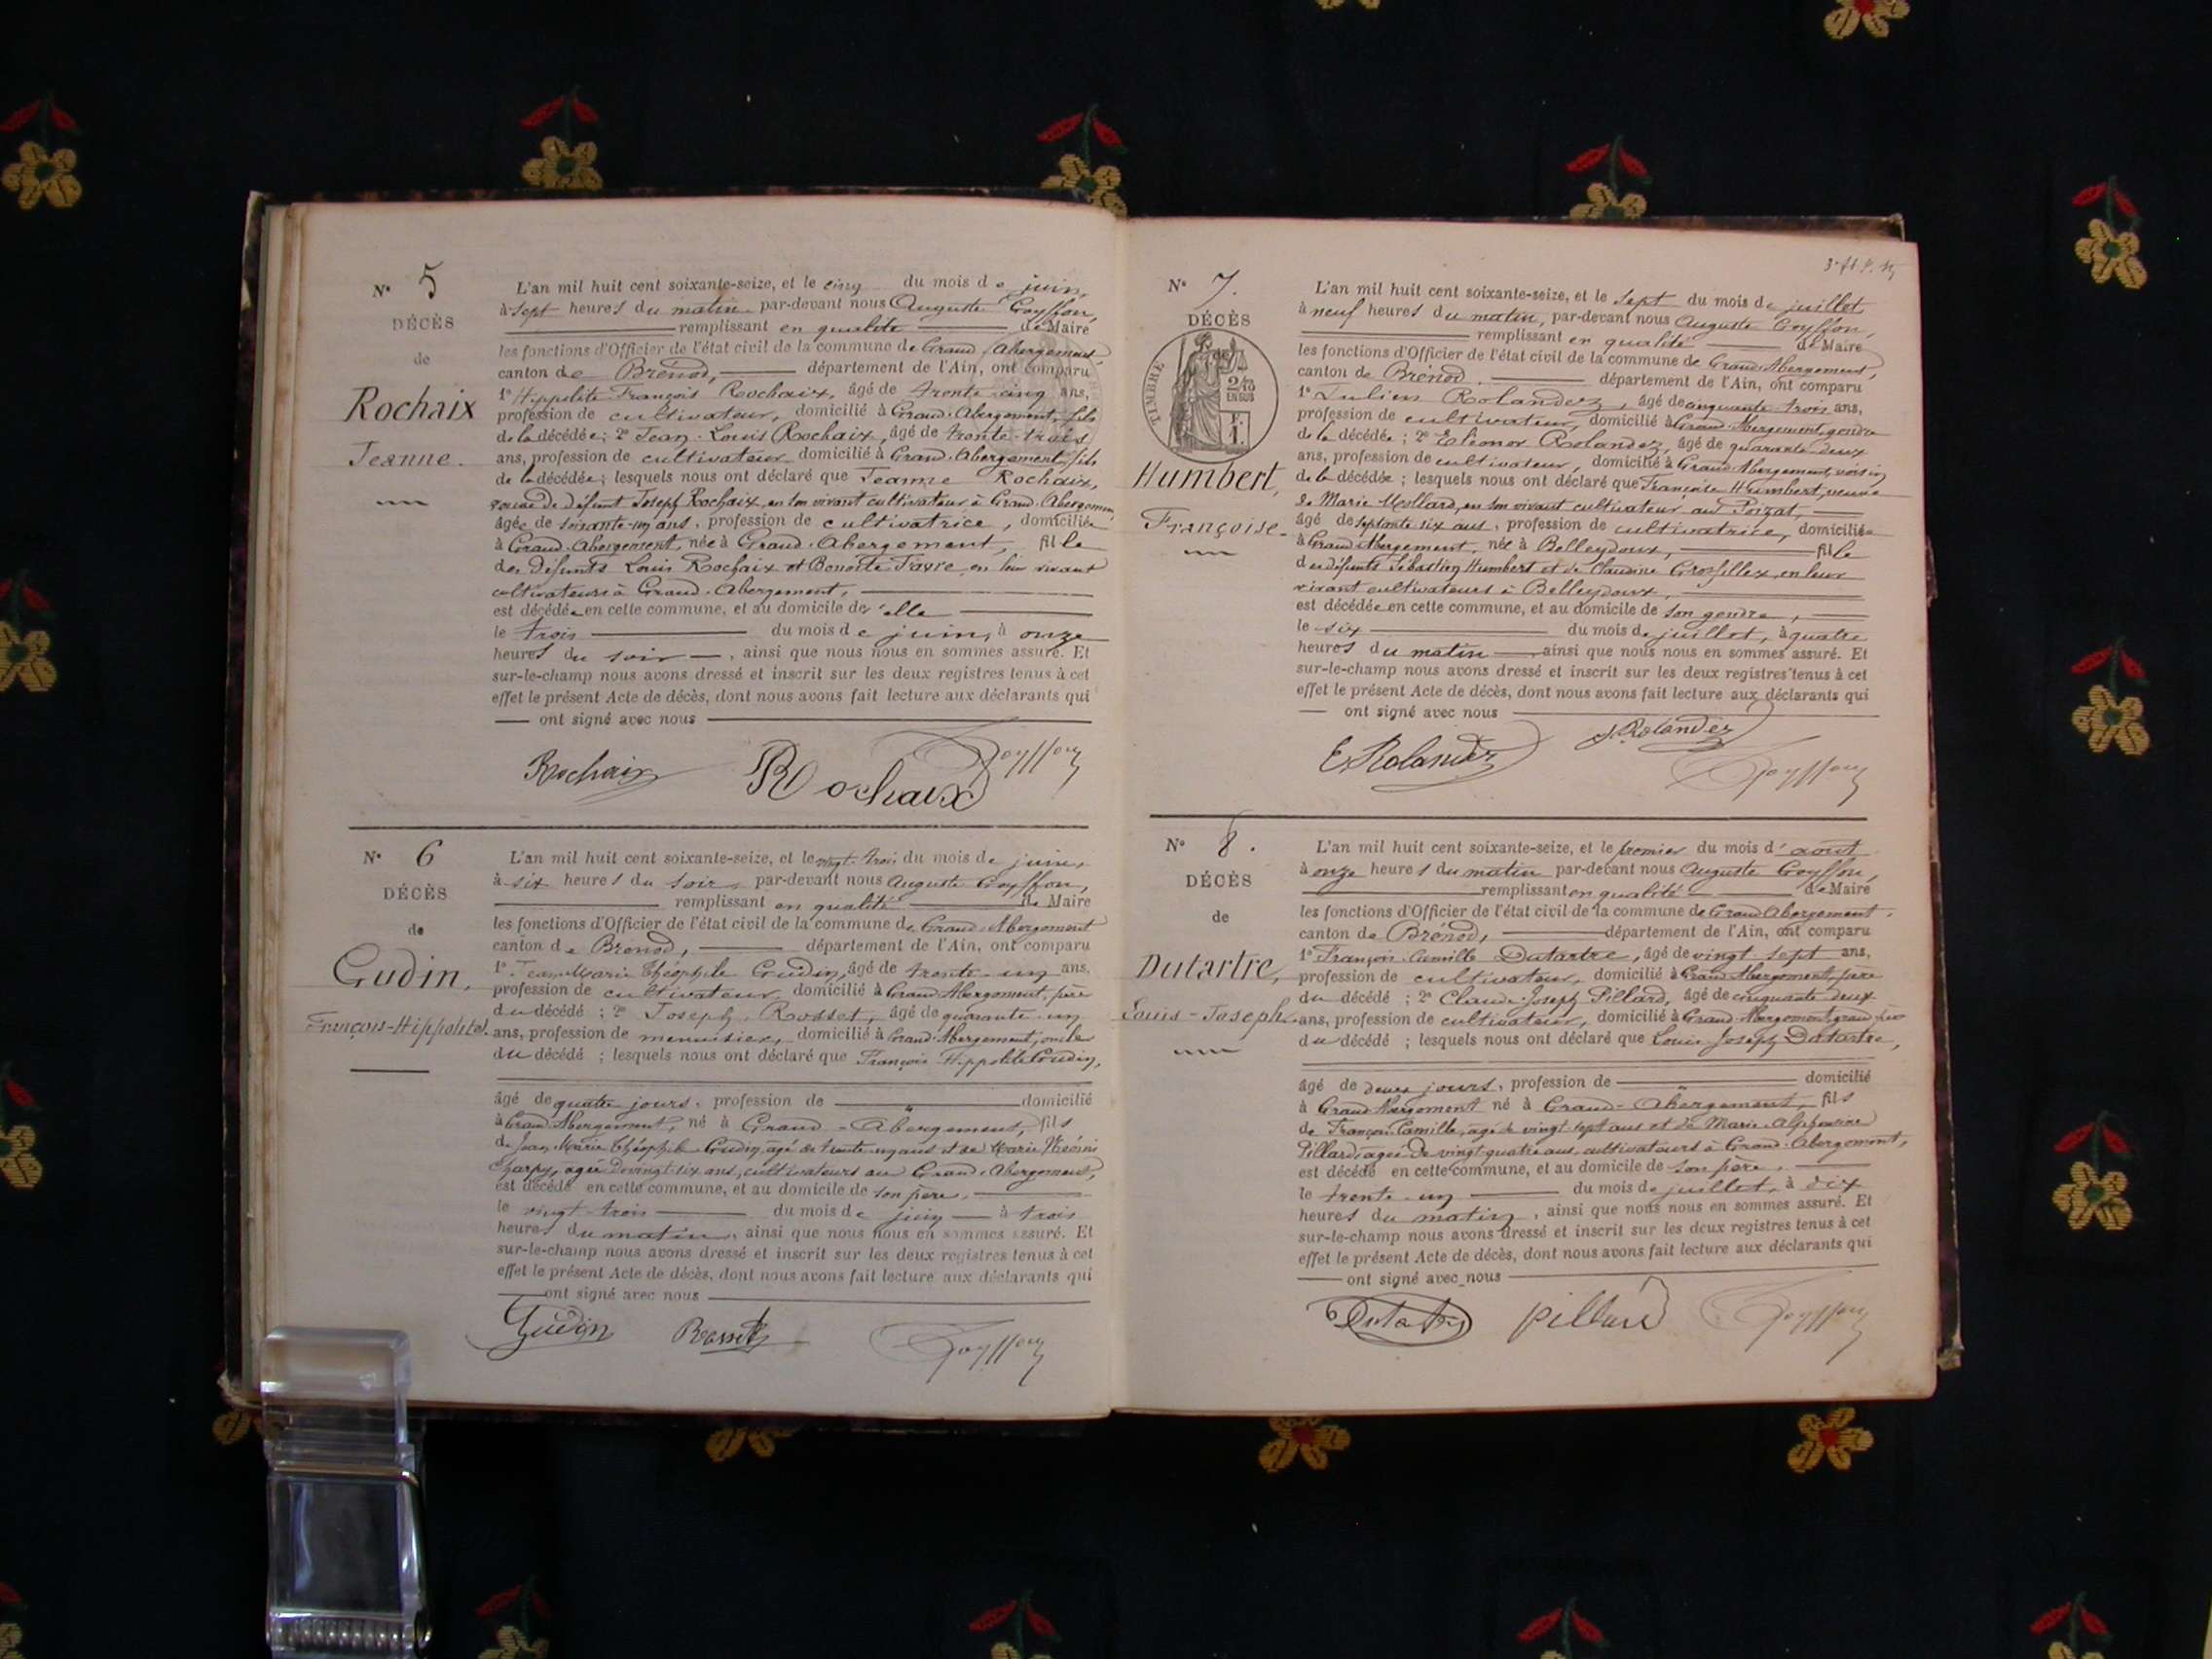 N° 5
DÉCÈS
de
Rochaix
Jeanne.
L'an mil huit cent soixante-seize, et le cinq du mois de juin,
à sept heures du matin par-devant nous Auguste Goyffon,
remplissant en qualité de Maire
les fonctions d'Officier de l'état civil de la commune de Grand Abergement,
canton de Brénod, département de l'Ain, ont comparu
1° Hippolite François Rochaix, âgé de trente-cinq ans,
profession de cultivateur, domicilié à Grand-Abergement, fils
de la décédée; 2° Jean-Louis Rochaix, âgé de trente-trois
ans, profession de cultivateur domicilié à Grand-Abergement, fils
de la décédée; lesquels nous ont déclaré que Jeanne Rochaix,
veuve de défunt Joseph Rochaix, en son vivant cultivateur à Grand-Abergement,
âgée de soixante-un ans, profession de cultivatrice, domiciliée
à Grand-Abergement, née à Grand-Abergement, fille
des défunts Louis Rochaix et Benoite Favre en leur vivant
cultivateurs à Grand-Abergement,
est décédée en cette commune, et au domicile de elle
le trois du mois de juin, à onze
heures du soir, ainsi que nous nous en sommes assuré. Et
sur-le-champ nous avons dressé et inscrit sur les deux registres tenus à cet
effet le présent Acte de décès, dont nous avons fait lecture aux déclarants qui
ont signé avec nous
Rochaix Rochaix Goyffon
N° 6
DÉCÈS
de
Gudin,
François-Hippolite.
L'an mil huit cent soixante-seize, et le vingt-trois du mois de juin,
à six heures du soir, par-devant nous Auguste Goyffon,
remplissant en qualité de Maire
les fonctions d'Officier de l'état civil de la commune de Grand-Abergement
canton de Brénod, département de l'Ain, ont comparu
1° Jean-Marie Théophile Gudin, âgé de trente-un ans,
profession de cultivateur domicilié à Grand-Abergement, père
du décédé; 2° Joseph Rosset, âgé de quarante-un
ans, profession de menuisier, domicilié à Grand-Abergement, oncle
du décédé; lesquels nous ont déclaré que François Hippolite Gudin,
âgé de quatre jours, profession de domicilié
à Grand-Abergement, né à Grand-Abergement, fils
de Jean Marie Théophile Gudin, âgé de trente-un ans et de Marie
Charpy, agée de vingt-six ans, cultivateurs au Grand-Abergement,
est décédé en cette commune, et au domicile de son père,
le vingt-trois du mois de juin à trois
heures du matin, ainsi que nous nous en sommes assuré. Et
sur-le-champ nous avons dressé et inscrit sur les deux registres tenus à cet
effet le présent Acte de décès, dont nous avons fait lecture aux déclarants qui
ont signé avec nous
Gudin Rosset Goyffon
N° 7.
DÉCÈS
de
TIMBRE
2/10
EN SUS
Humbert,
Françoise.
L'an mil huit cent soixante-seize, et le sept du mois de juillet,
à neuf heures du matin, par-devant nous Auguste Goyffon,
remplissant en qualité de Maire
les fonctions d'Officier de l'état civil de la commune de Grand-Abergement,
canton de Brénod département de l'Ain, ont comparu
1° Julien Rolandez, âgé de cinquante-trois ans,
profession de cultivateur, domicilié à Grand-Abergement, gendre
de la décédée; 2° Eléonor Rolandez, âgé de quarante-deux
ans, profession de cultivateur, domicilié à Grand-Abergement, voisin
de la décédée; lesquels nous ont déclaré que Françoise Humbert, veuve
de Marie Mollard, en son vivant cultivateur au Poizat,
âgé de septante six ans, profession de cultivatrice, domiciliée
à Grand-Abergement, née à Belleydoux, fille
des défunts Sébastien Humbert et de Claudine Grosfillex, en leur
vivant cultivateurs à Belleydoux,
est décédée en cette commune, et au domicile de son gendre,
le six du mois de juillet, à quatre
heures du matin ainsi que nous nous en sommes assuré. Et
sur-le-champ nous avons dressé et inscrit sur les deux registres tenus à cet
effet le présent Acte de décès, dont nous avons fait lecture aux déclarants qui
ont signé avec nous
E Rolandez J. Rolandez Goyffon
N° 8.
DÉCÈS
de
Dutartre,
Louis-Joseph.
L'an mil huit cent soixante-seize, et le premier du mois d'août
à onze heures du matin par-devant nous Auguste Goyffon,
remplissant en qualité de Maire
les fonctions d'Officier de l'état civil de la commune de Grand Abergement,
canton de Brénod, département de l'Ain, ont comparu
1° François-Camille Dutartre, âgé de vingt sept ans,
profession de cultivateur, domicilié à Grand-Abergement, père
du décédé; 2° Claude-Joseph Pillard, âgé de cinquante deux
ans, profession de cultivateur, domicilié à Grand-Abergement, grand-père
du décédé; lesquels nous ont déclaré que Louis-Joseph Dutartre,
âgé de deux jours, profession de domicilié
à Grand Abergement né à Grand-Abergement, fils
de François Camille, agé de vingt sept ans et de Marie-Alphonsine
Pillard, agée de vingt-quatre ans, cultivateurs à Grand-Abergement,
est décédé en cette commune, et au domicile de son père,
le trente-un du mois de juillet, à dix
heures du matin, ainsi que nous nous en sommes assuré. Et
sur-le-champ nous avons dressé et inscrit sur les deux registres tenus à cet
effet le présent Acte de décès, dont nous avons fait lecture aux déclarants qui
ont signé avec nous
Dutartre pillard Goyffon